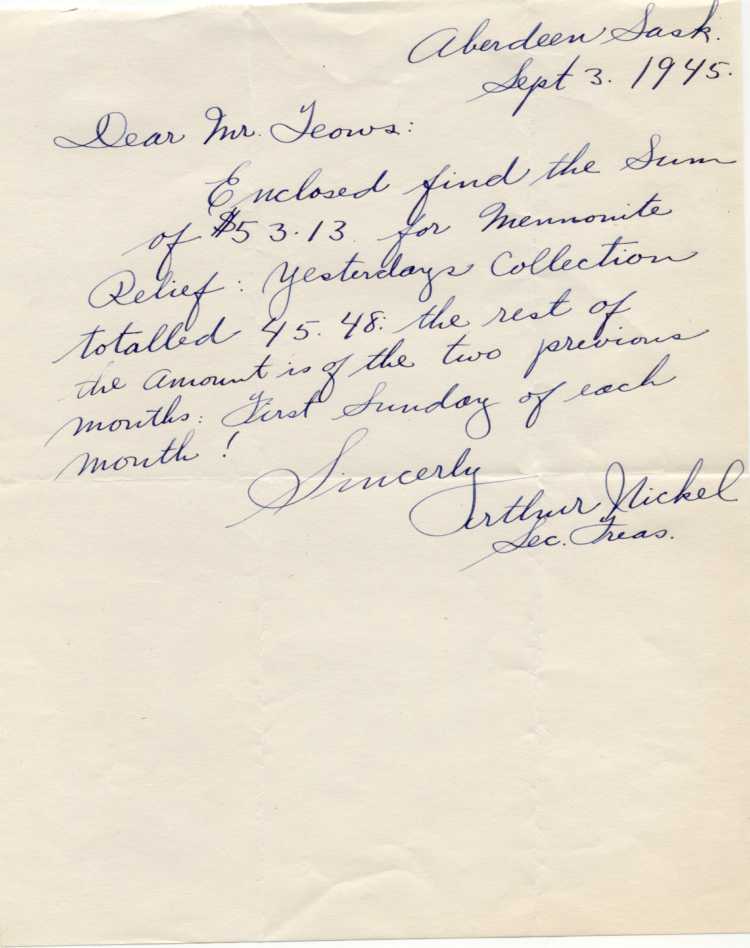 Aberdeen Sask.
Sept 3. 1945.
Dear Mr. Teows:
Enclosed find the Sum
of $53.13 for Mennonite
Relief: Yesterdays Collection
totalled 45.48: the rest of
the amount is of the two previous
months: First Sunday of each
month!
Sincerly
Arthur Nickel
Sec. Treas.